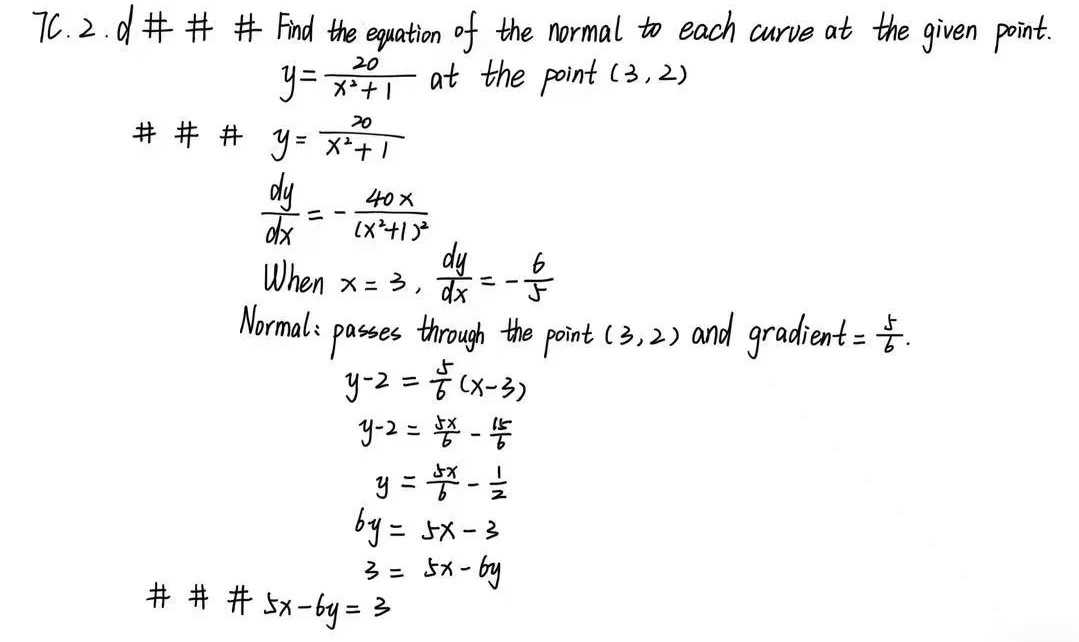 7C.2.d # # # Find the equation of the normal to each curve at the given point.
y = 20/(x²+1) at the point (3,2)
# # # y = 20/(x²+1)
dy/dx = - 40x/(x²+1)²
When x = 3, dy/dx = - 6/5
Normal: passes through the point (3,2) and gradient = 5/6.
y-2 = 5/6 (x-3)
y-2 = 5x/6 - 15/6
y = 5x/6 - 1/2
6y = 5x - 3
3 = 5x - 6y
# # # 5x-6y = 3